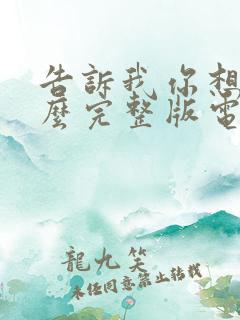 告訴我你想
麼完整版電
龍九笑
未経同意禁止转载